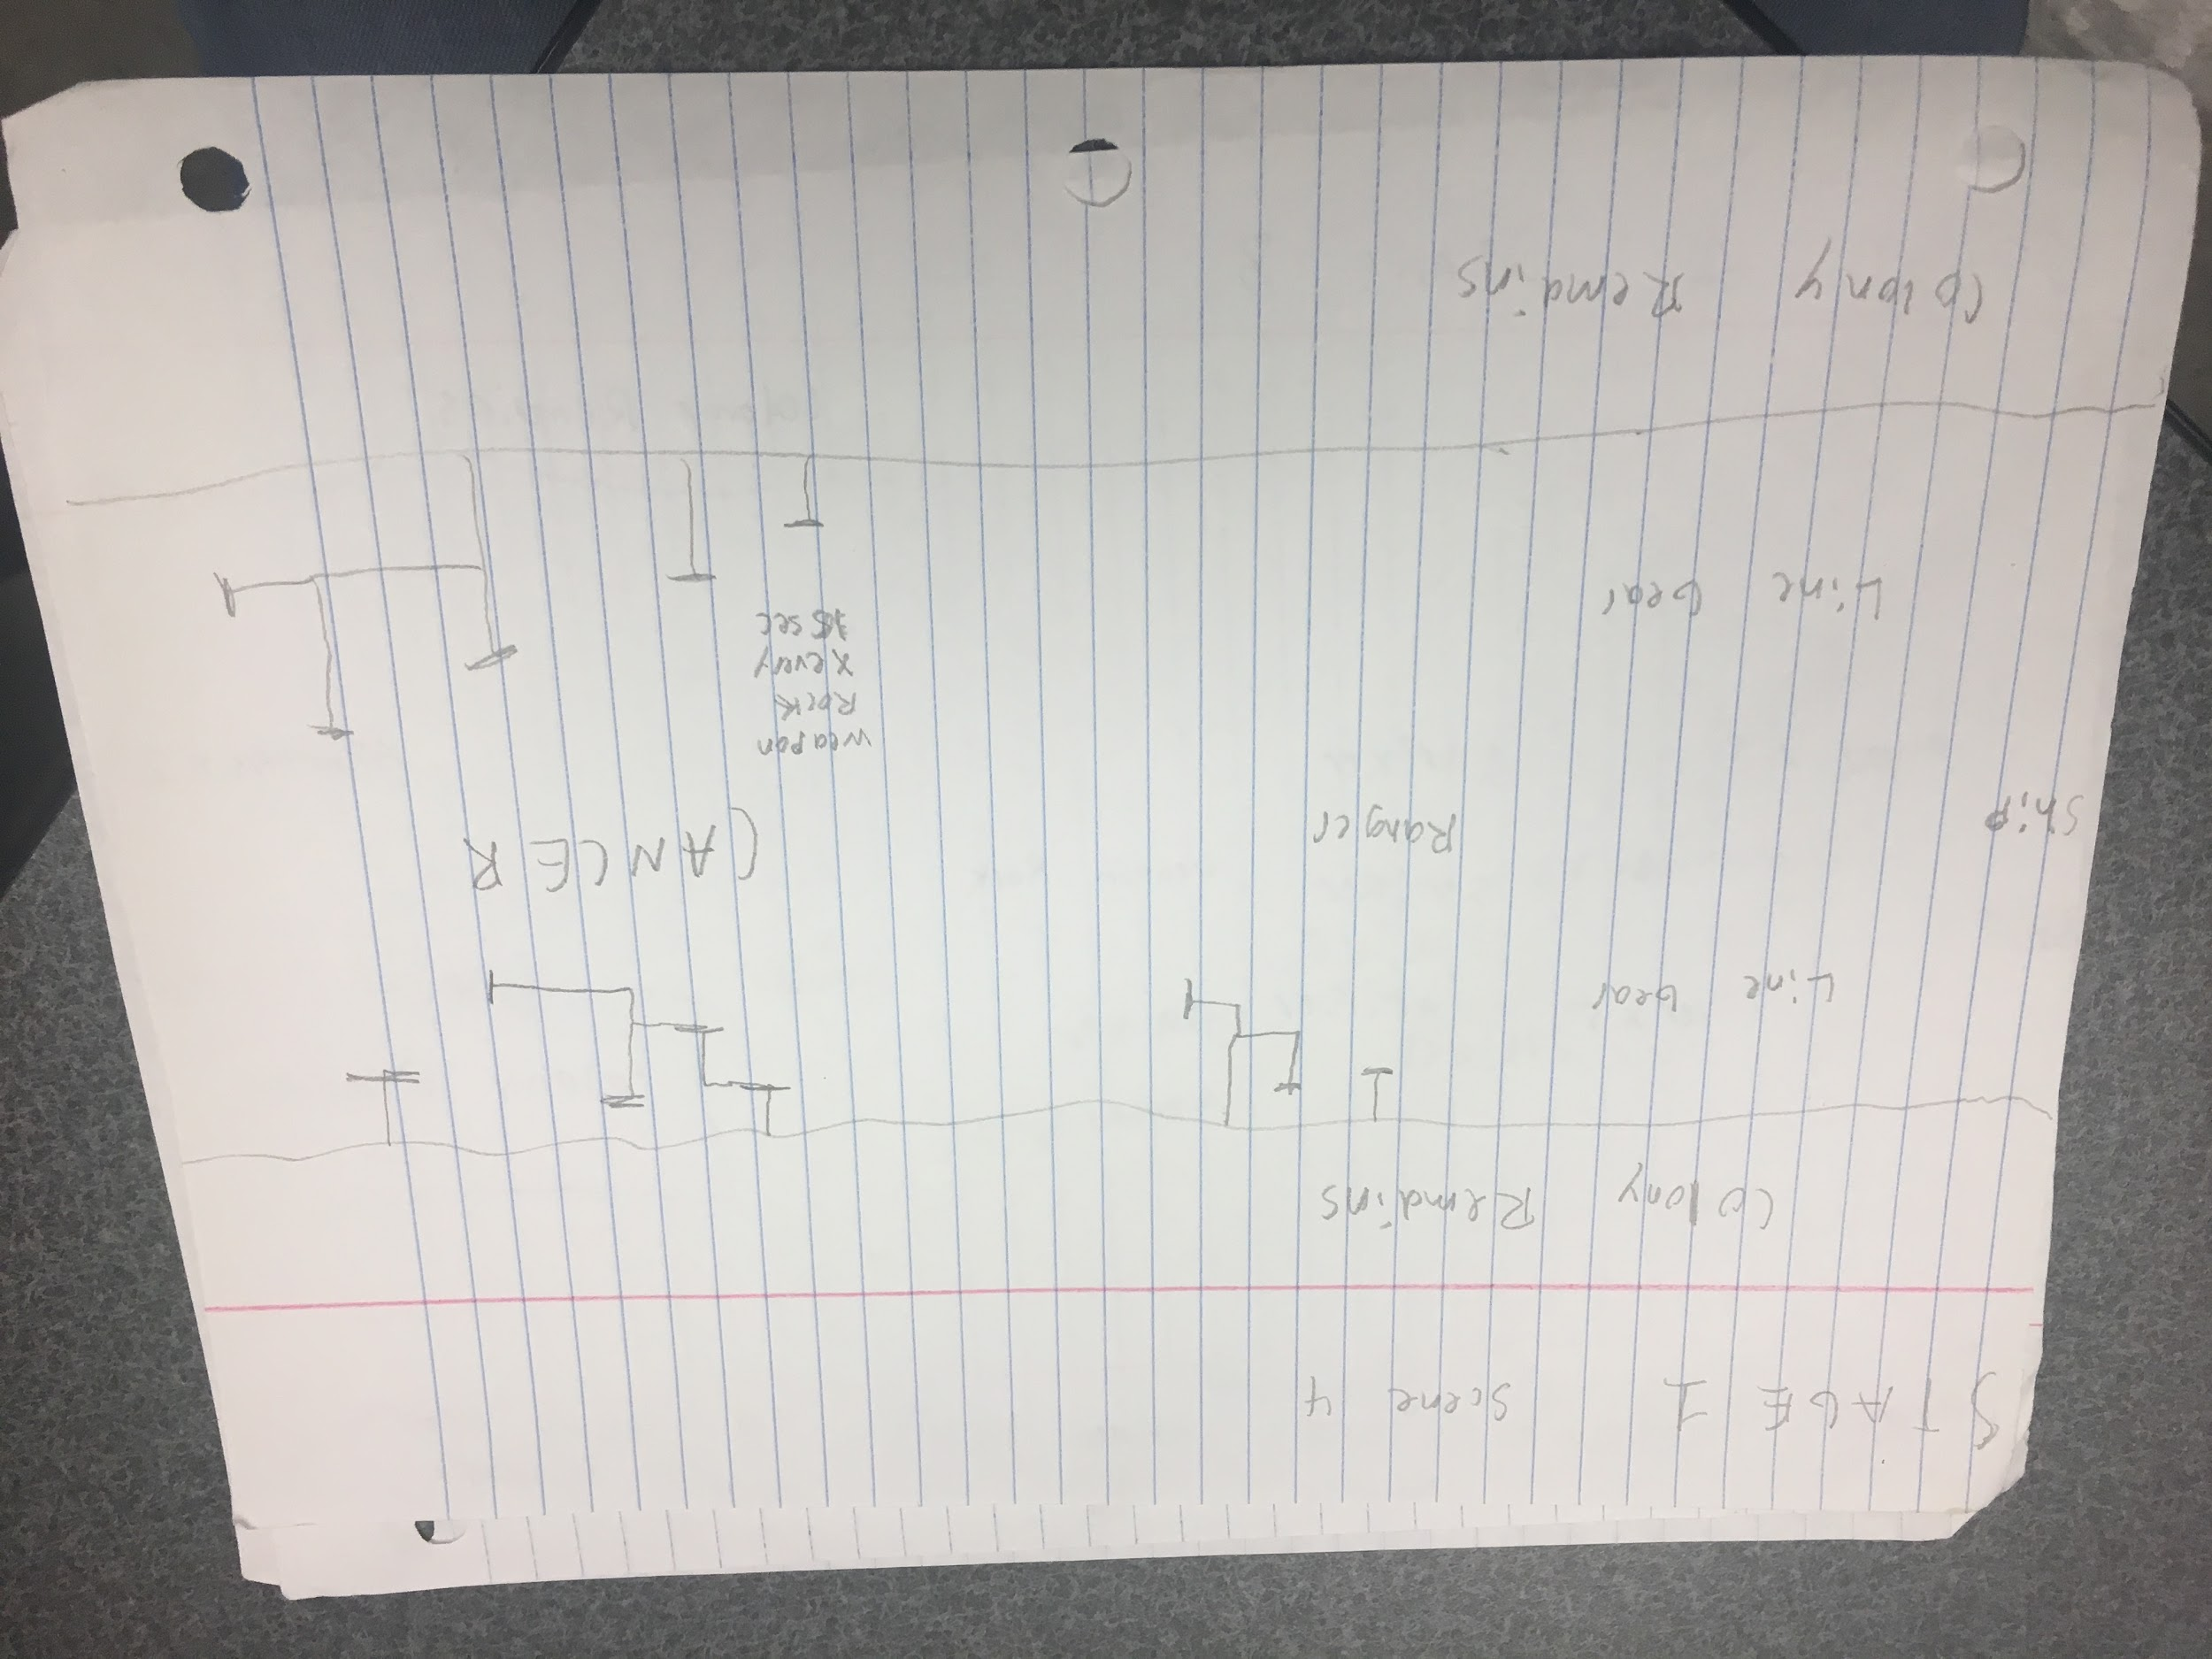 STAGE 1 Scene 4
Colony Remains
Line Gear
Ship
Ranger
CANCER
weapon
Rock
x every
sec
Line Gear
Colony Remains